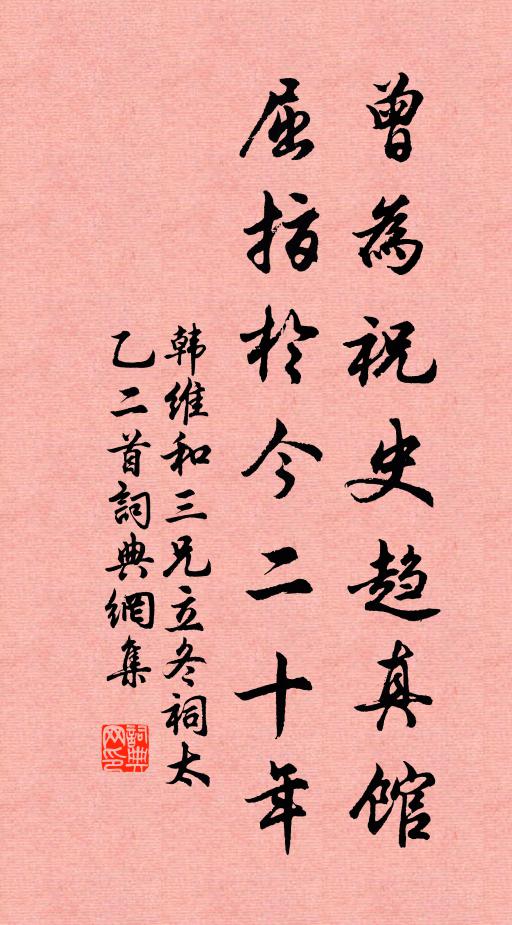 曾為祝史趋真館
屈指於今二十年
韩維和三兄立冬祠太
乙二首詞典網集
詞典
网印